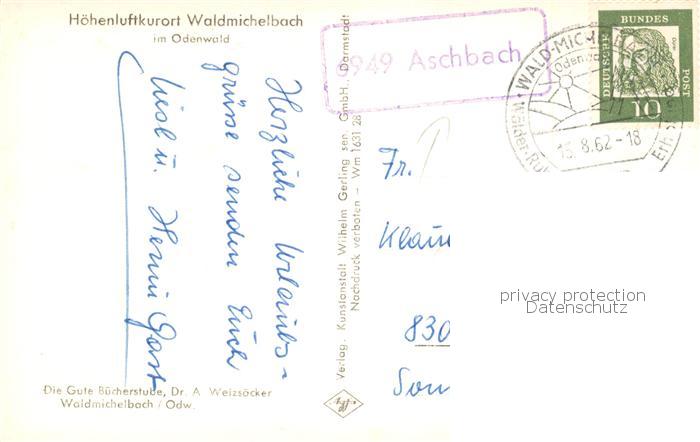 Höhenluftkurort Waldmichelbach
im Odenwald
Herzliche Urlaubs-
grüsse senden Euch
Liesl u. Henni Gast
Die Gute Bücherstube, Dr. A. Weizsäcker
Waldmichelbach / Odw.
Verlag. Kunstanstalt Wilhelm Gerling sen. GmbH., Darmstadt
Nachdruck verboten – Wm 1631 28
6949 Aschbach
WALD-MICH
Odenwa
Wälder-Ruh
Erh
15.8.62-18
DEUTSCHE
BUNDES
POST
10
Fr.
Klau
830
Son
privacy protection
Datenschutz